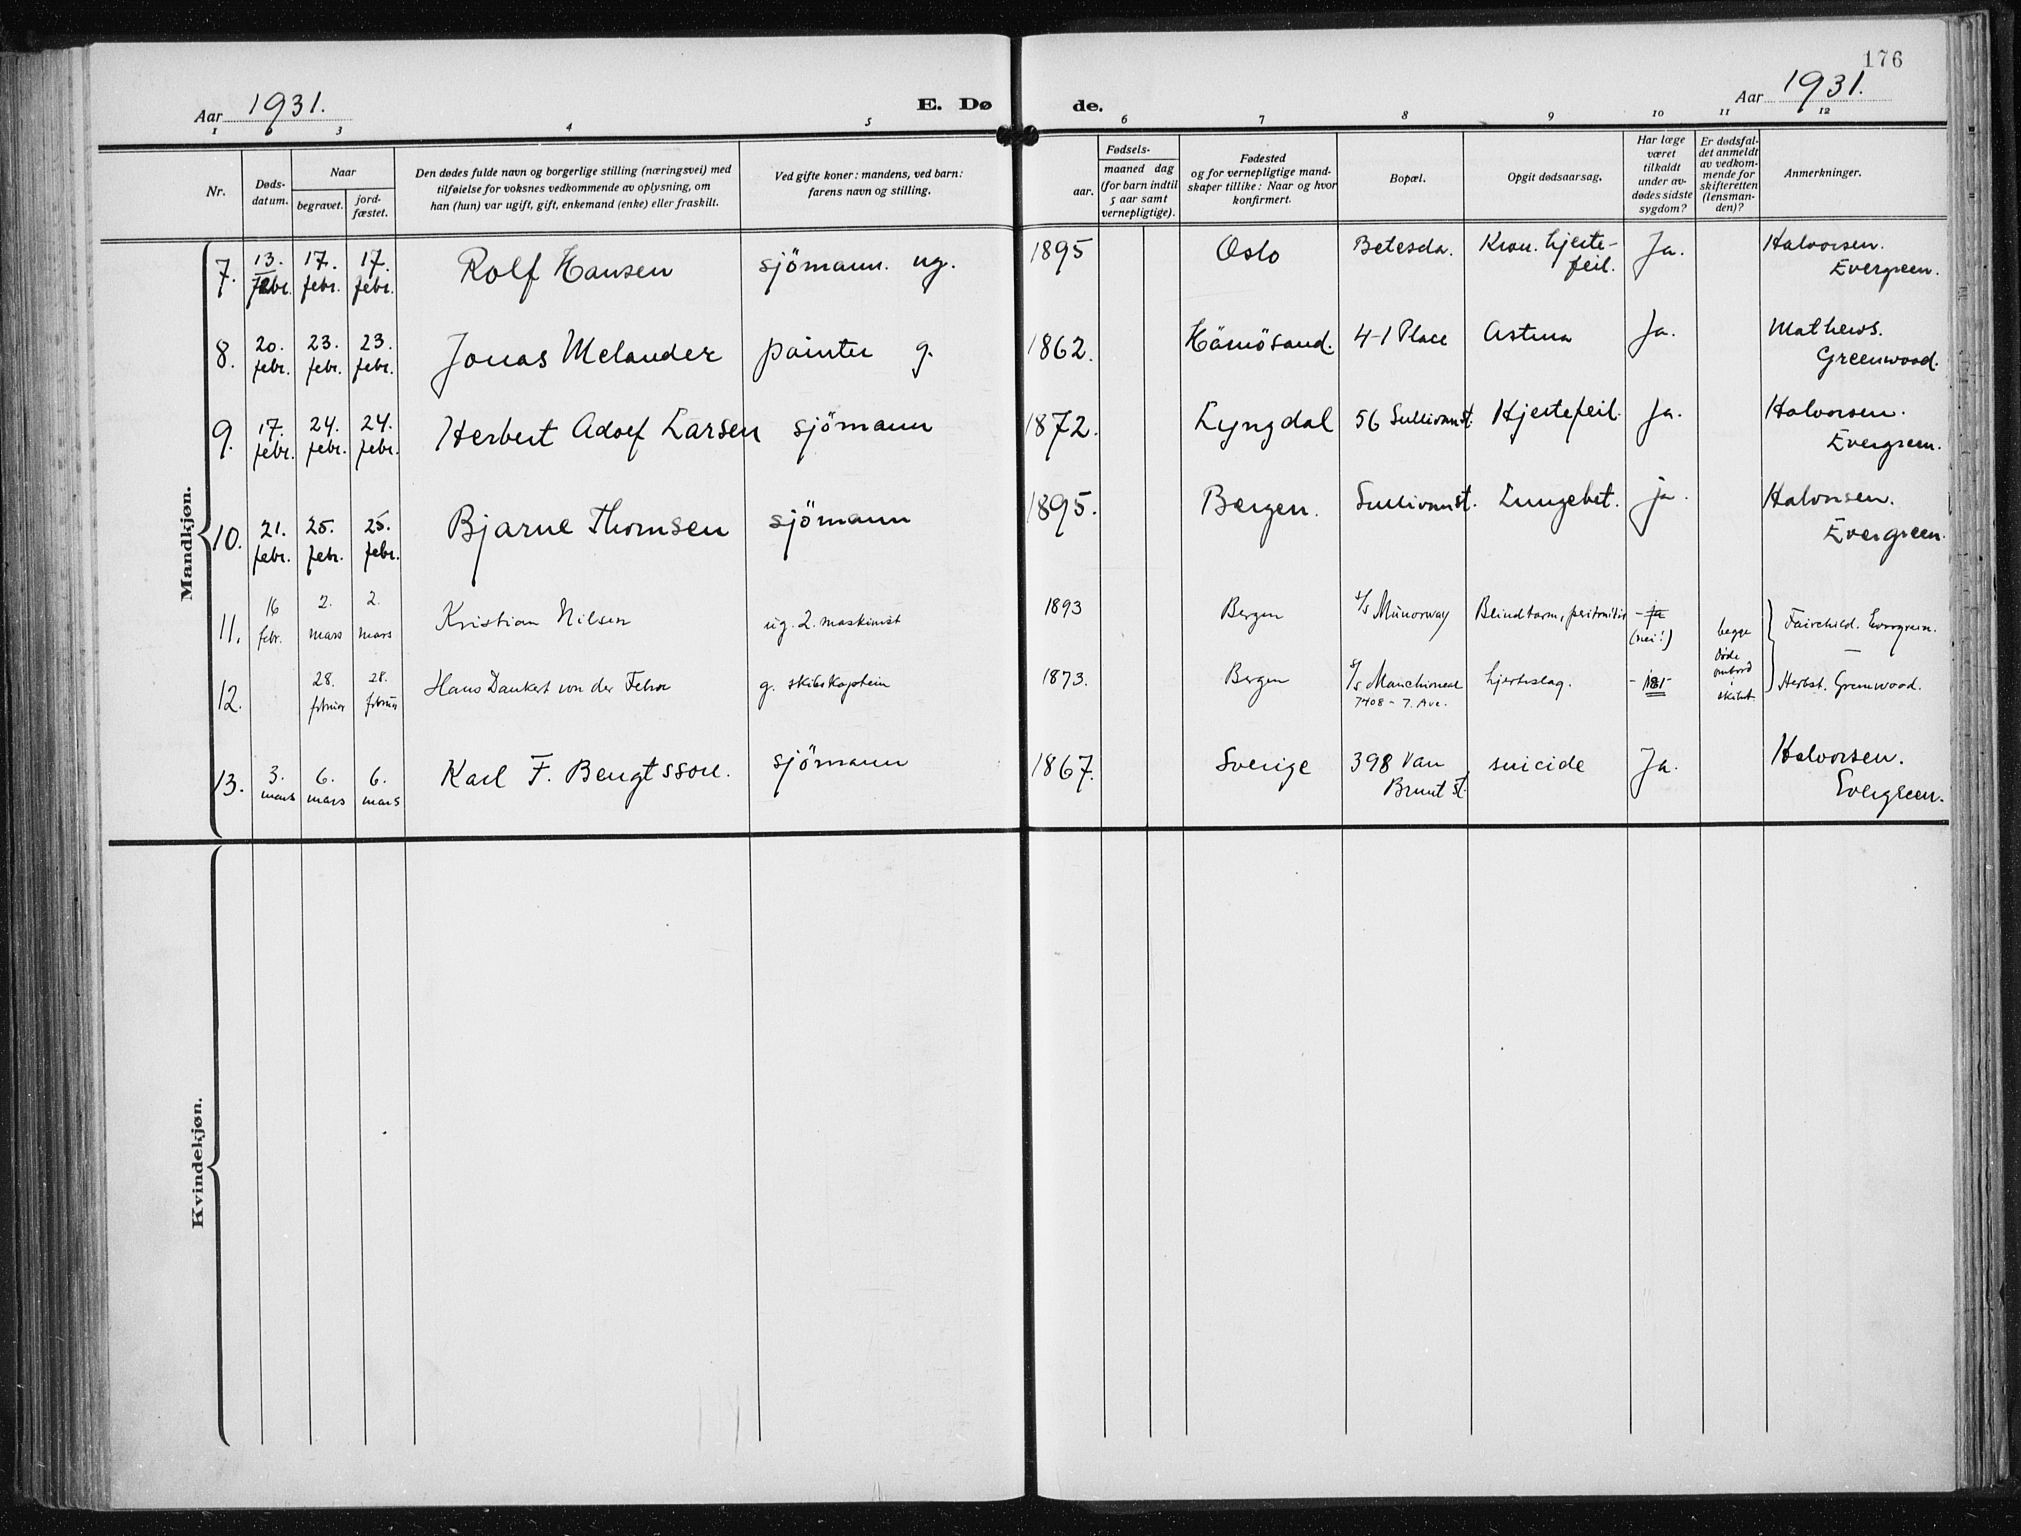 176
Aar 1931.
E. Døde.
Aar 1931.
1 2 3 4 5 6 7 8 9 10 11 12
Nr.
Døds-
datum.
Naar
begravet.
jord-
fæstet.
Den dødes fulde navn og borgerlige stilling (næringsvei) med
tilføielse for voksnes vedkommende av oplysning, om
han (hun) var ugift, gift, enkemand (enke) eller fraskilt.
Ved gifte koner: mandens, ved barn:
farens navn og stilling.
Fødsels-
aar.
maaned dag
(for barn indtil
5 aar samt
vernepligtige).
Fødested
og for vernepligtige mand-
skaper tillike: Naar og hvor
konfirmert.
Bopæl.
Opgit dødsaarsag.
Har læge
været
tilkaldt
under av-
dødes sidste
sygdom?
Er dødsfal-
det anmeldt
av vedkom-
mende for
skifteretten
(lensman-
den)?
Anmerkninger.
Mandkjøn.
7. 13. febr. 17. febr. 17. febr. Rolf Hansen sjömann. ug. 1895 Oslo Betesda. Kron. hjerte-
feil. Ja. Halvorsen.
Evergreen.
8. 20. febr. 23. febr. 23. febr. Jonas Melander painter g. 1862. Härnösand. 41 Place Astma Ja. Mathews.
Greenwood.
9. 17. febr. 24. febr. 24. febr. Herbert Adolf Larsen sjömann 1872. Lyngdal 56 Sullivanst. Hjertefeil. Ja. Halvorsen.
Evergreen.
10. 21. febr. 25. febr. 25. febr. Bjarne Thomsen sjömann 1895. Bergen. Sullivanst. Lungebet. ja. Halvorsen.
Evergreen.
11. 16 febr. 2. mars 2. mars Kristian Nilsen ug. 2. maskinist 1893 Bergen s/s Munorway Blindtarm, peritonitis - ja
(nei!) Fairchild. Evergreen.
begge
døde
ombord
i
skibet.
12. 28. februar 28. februar Hans Dankert von der Fehr g. skibskaptein 1873. Bergen s/s Manchioneal
7408 - 7. Ave. hjerteslag. Herbst. Greenwood.
13. 3. mars 6. mars 6. mars Karl F. Bengtsson. sjömann 1867. Sverige 398 Van
Brunt St. suicide Ja. Halvorsen.
Evergreen.
Kvindekjøn.